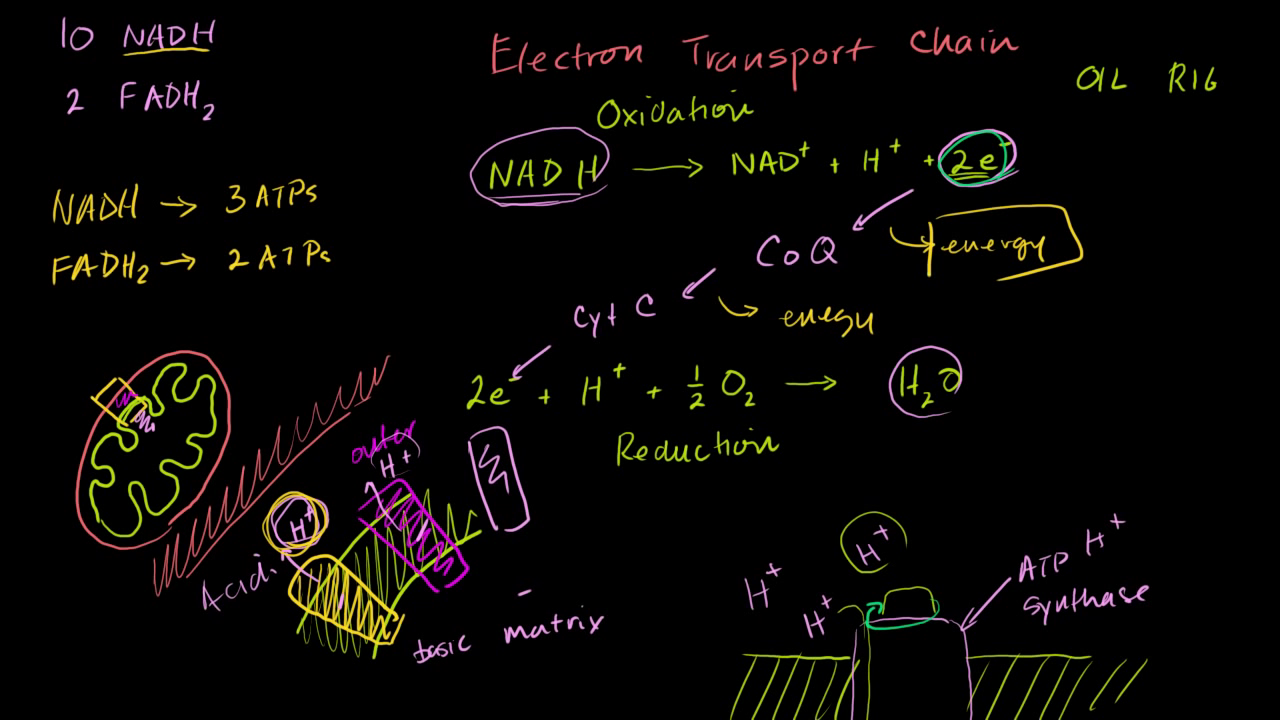 10 NADH
2 FADH₂
NADH → 3 ATPs
FADH₂ → 2 ATPs
Electron Transport Chain
OIL RIG
Oxidation
NADH → NAD⁺ + H⁺ + 2e⁻
CoQ
energy
Cyt C
energy
2e⁻ + H⁺ + ½ O₂ → H₂O
Reduction
outer
H⁺
H⁺
Acidic
basic matrix
H⁺
H⁺
H⁺
H⁺
ATP
synthase